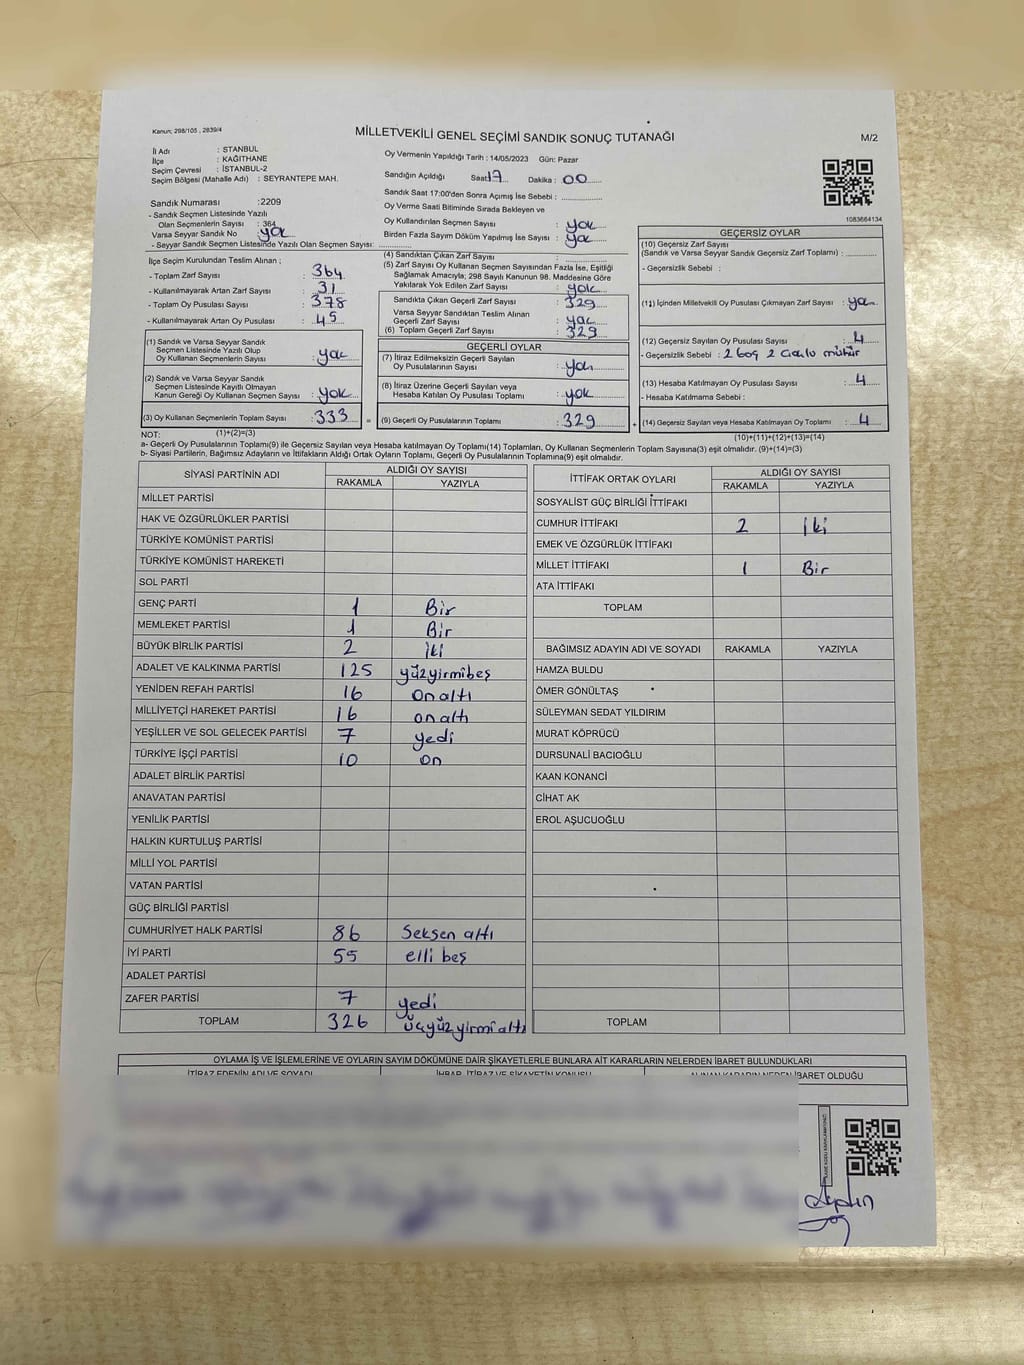 Kanun; 298/105 , 2839/4
MİLLETVEKİLİ GENEL SEÇİMİ SANDIK SONUÇ TUTANAĞI
M/2
İl Adı : STANBUL
İlçe : KAĞITHANE
Seçim Çevresi : İSTANBUL-2
Seçim Bölgesi (Mahalle Adı) : SEYRANTEPE MAH.
Sandık Numarası :2209
- Sandık Seçmen Listesinde Yazılı
Olan Seçmenlerin Sayısı : 364
Varsa Seyyar Sandık No : yok
- Seyyar Sandık Seçmen Listesinde Yazılı Olan Seçmen Sayısı:
Oy Vermenin Yapıldığı Tarih : 14/05/2023 Gün: Pazar
Sandığın Açıldığı Saat:17 Dakika : 00
Sandık Saat 17:00'den Sonra Açımış İse Sebebi :
Oy Verme Saati Bitiminde Sırada Bekleyen ve
Oy Kullandırılan Seçmen Sayısı : yok
Birden Fazla Sayım Döküm Yapılmış İse Sayısı : yok
1083664134
İlçe Seçim Kurulundan Teslim Alınan ;
- Toplam Zarf Sayısı : 364
- Kullanılmayarak Artan Zarf Sayısı : 31
- Toplam Oy Pusulası Sayısı : 378
- Kullanılmayarak Artan Oy Pusulası : 45
(1) Sandık ve Varsa Seyyar Sandık
Seçmen Listesinde Yazılı Olup
Oy Kullanan Seçmenlerin Sayısı :
(2) Sandık ve Varsa Seyyar Sandık
Seçmen Listesinde Kayıtlı Olmayan
Kanun Gereği Oy Kullanan Seçmen Sayısı : yok
(3) Oy Kullanan Seçmenlerin Toplam Sayısı : 333
(1)+(2)=(3)
(4) Sandıktan Çıkan Zarf Sayısı :
(5) Zarf Sayısı Oy Kullanan Seçmen Sayısından Fazla İse, Eşitliği
Sağlamak Amacıyla; 298 Sayılı Kanunun 98. Maddesine Göre
Yakılarak Yok Edilen Zarf Sayısı : yok
Sandıkta Çıkan Geçerli Zarf Sayısı : 329
Varsa Seyyar Sandıktan Teslim Alınan
Geçerli Zarf Sayısı : yok
(6) Toplam Geçerli Zarf Sayısı : 329
GEÇERLİ OYLAR
(7) İtiraz Edilmeksizin Geçerli Sayılan
Oy Pusulalarının Sayısı :
(8) İtiraz Üzerine Geçerli Sayılan veya
Hesaba Katılan Oy Pusulası Toplamı : yok
= (9) Geçerli Oy Pusulalarının Toplamı : 329
GEÇERSİZ OYLAR
(10) Geçersiz Zarf Sayısı
(Sandık ve Varsa Seyyar Sandık Geçersiz Zarf Toplamı) :
- Geçersizlik Sebebi :
(11) İçinden Milletvekili Oy Pusulası Çıkmayan Zarf Sayısı :
(12) Geçersiz Sayılan Oy Pusulası Sayısı : 4
- Geçersizlik Sebebi : 2 boş 2 mühür
(13) Hesaba Katılmayan Oy Pusulası Sayısı : 4
- Hesaba Katılmama Sebebi :
+ (14) Geçersiz Sayılan veya Hesaba Katılmayan Oy Toplamı : 4
(10)+(11)+(12)+(13)=(14)
NOT:
a- Geçerli Oy Pusulalarının Toplamı(9) ile Geçersiz Sayılan veya Hesaba katılmayan Oy Toplamı(14) Toplamları, Oy Kullanan Seçmenlerin Toplam Sayısına(3) eşit olmalıdır. (9)+(14)=(3)
b- Siyasi Partilerin, Bağımsız Adayların ve İttifakların Aldığı Ortak Oyların Toplamı, Geçerli Oy Pusulalarının Toplamına(9) eşit olmalıdır.
SİYASİ PARTİNİN ADI
ALDIĞI OY SAYISI
RAKAMLA YAZIYLA
MİLLET PARTİSİ
HAK VE ÖZGÜRLÜKLER PARTİSİ
TÜRKİYE KOMÜNİST PARTİSİ
TÜRKİYE KOMÜNİST HAREKETİ
SOL PARTİ
GENÇ PARTİ 1 Bir
MEMLEKET PARTİSİ 1 Bir
BÜYÜK BİRLİK PARTİSİ 2 iki
ADALET VE KALKINMA PARTİSİ 125 yüzyirmibeş
YENİDEN REFAH PARTİSİ 16 on altı
MİLLİYETÇİ HAREKET PARTİSİ 16 on altı
YEŞİLLER VE SOL GELECEK PARTİSİ 7 yedi
TÜRKİYE İŞÇİ PARTİSİ 10 on
ADALET BİRLİK PARTİSİ
ANAVATAN PARTİSİ
YENİLİK PARTİSİ
HALKIN KURTULUŞ PARTİSİ
MİLLİ YOL PARTİSİ
VATAN PARTİSİ
GÜÇ BİRLİĞİ PARTİSİ
CUMHURİYET HALK PARTİSİ 86 Seksen altı
İYİ PARTİ 55 elli beş
ADALET PARTİSİ
ZAFER PARTİSİ 7 yedi
TOPLAM 326 üçyüzyirmialtı
İTTİFAK ORTAK OYLARI
ALDIĞI OY SAYISI
RAKAMLA YAZIYLA
SOSYALİST GÜÇ BİRLİĞİ İTTİFAKI
CUMHUR İTTİFAKI 2 iki
EMEK VE ÖZGÜRLÜK İTTİFAKI
MİLLET İTTİFAKI 1 Bir
ATA İTTİFAKI
TOPLAM
BAĞIMSIZ ADAYIN ADI VE SOYADI RAKAMLA YAZIYLA
HAMZA BULDU
ÖMER GÖNÜLTAŞ
SÜLEYMAN SEDAT YILDIRIM
MURAT KÖPRÜCÜ
DURSUNALİ BACIOĞLU
KAAN KONANCİ
CİHAT AK
EROL AŞUCUOĞLU
TOPLAM
OYLAMA İŞ VE İŞLEMLERİNE VE OYLARIN SAYIM DÖKÜMÜNE DAİR ŞİKAYETLERLE BUNLARA AİT KARARLARIN NELERDEN İBARET BULUNDUKLARI
İTİRAZ EDENİN ADI VE SOYADI İHBAR, İTİRAZ VE ŞİKAYETİN KONUSU ALINAN KARARIN NEDEN İBARET OLDUĞU